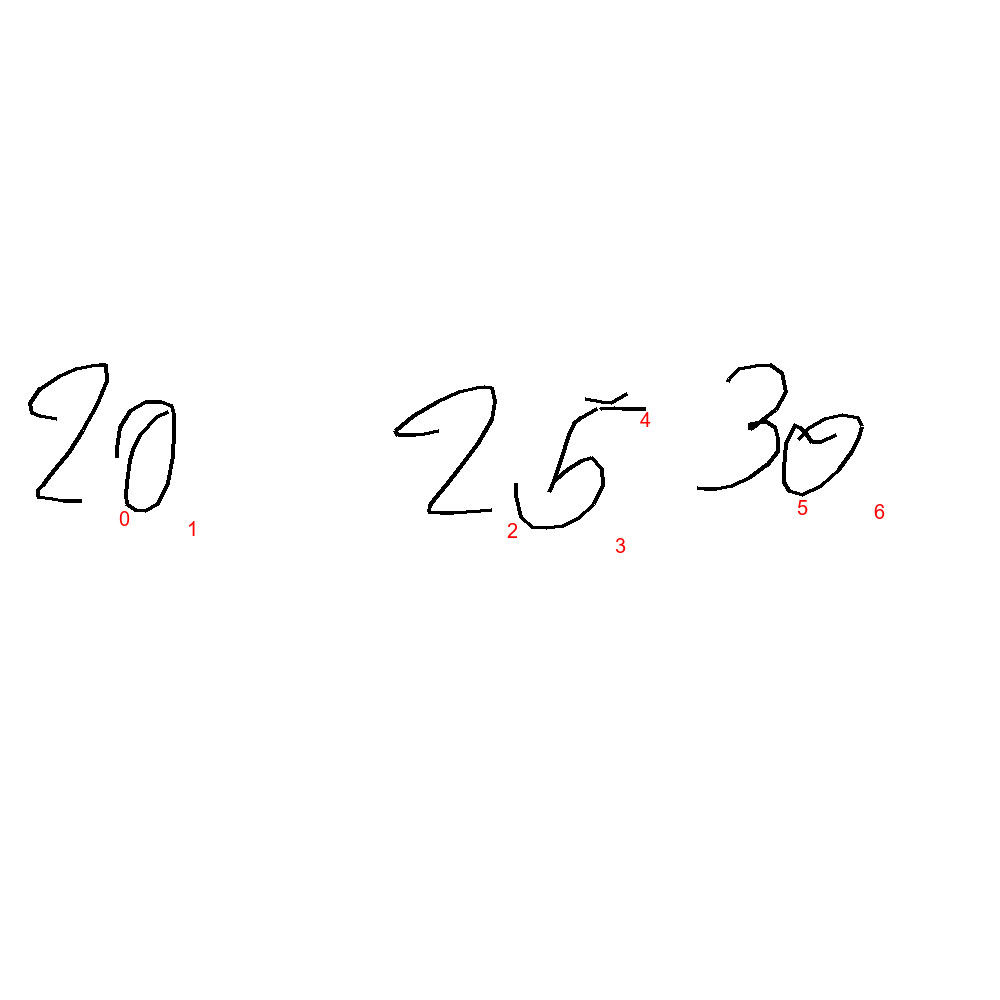 20 25 30
0 1 2 3 4 5 6